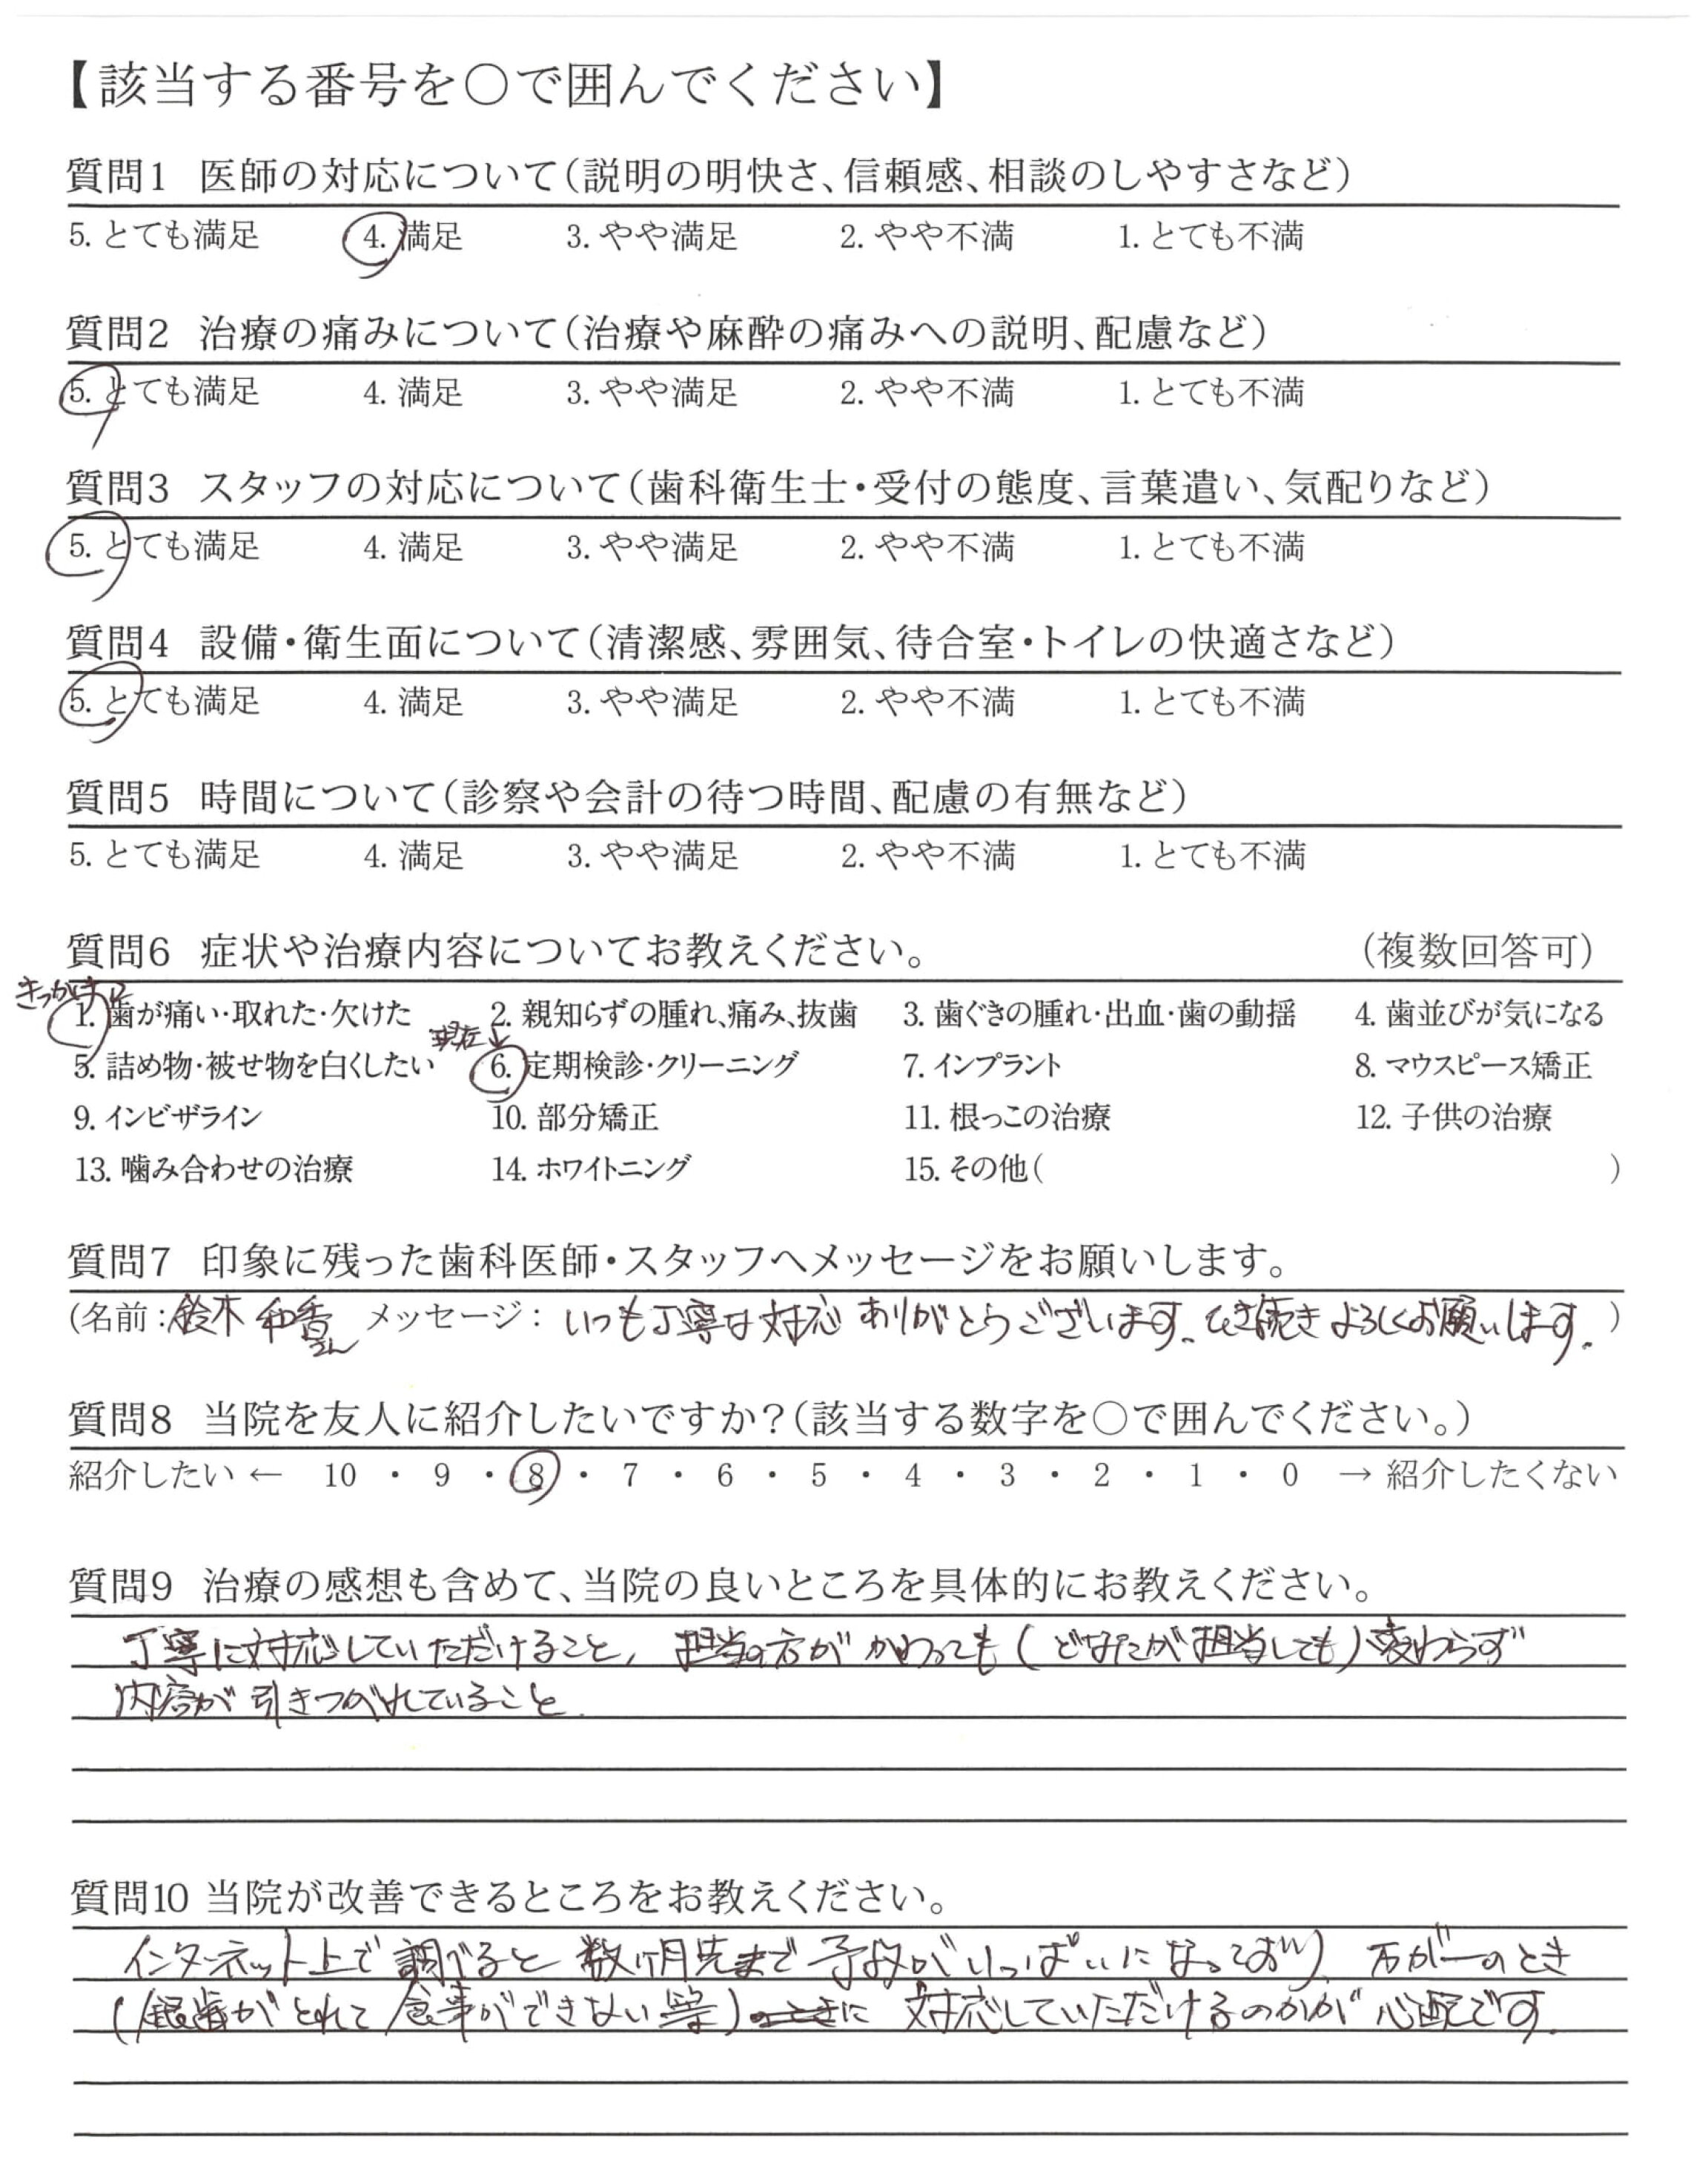 【該当する番号を○で囲んでください】
質問1 医師の対応について(説明の明快さ、信頼感、相談のしやすさなど)
5. とても満足 4. 満足 3. やや満足 2. やや不満 1. とても不満
質問2 治療の痛みについて(治療や麻酔の痛みへの説明、配慮など)
5. とても満足 4. 満足 3. やや満足 2. やや不満 1. とても不満
質問3 スタッフの対応について(歯科衛生士・受付の態度、言葉遣い、気配りなど)
5. とても満足 4. 満足 3. やや満足 2. やや不満 1. とても不満
質問4 設備・衛生面について(清潔感、雰囲気、待合室・トイレの快適さなど)
5. とても満足 4. 満足 3. やや満足 2. やや不満 1. とても不満
質問5 時間について(診察や会計の待つ時間、配慮の有無など)
5. とても満足 4. 満足 3. やや満足 2. やや不満 1. とても不満
質問6 症状や治療内容についてお教えください。 (複数回答可)
きっかけ
1. 歯が痛い・取れた・欠けた 2. 親知らずの腫れ、痛み、抜歯 3. 歯ぐきの腫れ・出血・歯の動揺 4. 歯並びが気になる
現在↓
5. 詰め物・被せ物を白くしたい 6. 定期検診・クリーニング 7. インプラント 8. マウスピース矯正
9. インビザライン 10. 部分矯正 11. 根っこの治療 12. 子供の治療
13. 噛み合わせの治療 14. ホワイトニング 15. その他( )
質問7 印象に残った歯科医師・スタッフへメッセージをお願いします。
(名前:鈴木 和香さん メッセージ: いつも丁寧な対応 ありがとうございます。ひき続き よろしくお願いします。)
質問8 当院を友人に紹介したいですか?(該当する数字を○で囲んでください。)
紹介したい ← 10 ・ 9 ・ 8 ・ 7 ・ 6 ・ 5 ・ 4 ・ 3 ・ 2 ・ 1 ・ 0 → 紹介したくない
質問9 治療の感想も含めて、当院の良いところを具体的にお教えください。
丁寧に対応していただけること, 担当の方が かわっても(どなたが担当しても)変わらず
内容が 引きつがれていること.
質問10 当院が改善できるところをお教えください。
インターネット上で 調べると 数ヶ月先まで 予約がいっぱいになっており、万が一のとき
(銀歯がとれて 食事ができない等)に 対応していただけるのかが 心配です.